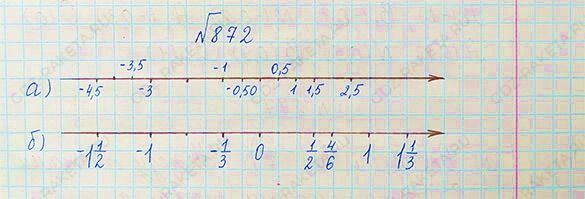 №872
-3,5 -1 0,5
а) -4,5 -3 -0,5 0 1 1,5 2,5
б) -1 1/2 -1 -1/3 0 1/2 4/6 1 1 1/3
GDZ-RAKETA.RU